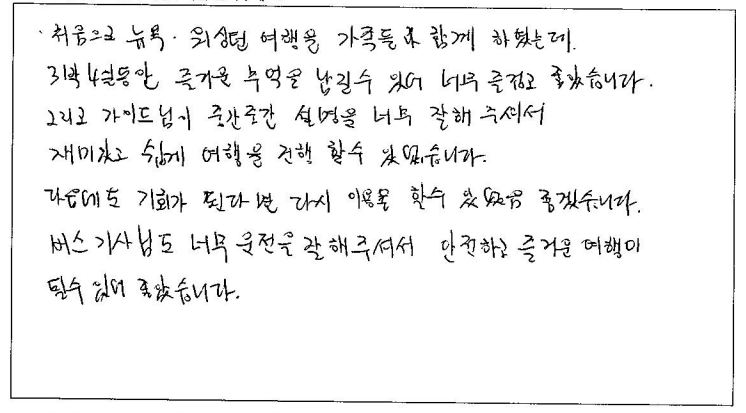 · 처음으로 뉴욕 · 워싱턴 여행을 가족들과 함께 하였는데.
3박4일동안 즐거운 추억을 남길수 있어 너무 즐겁고 좋았습니다.
그리고 가이드님이 중간중간 설명을 너무 잘해 주셔서
재미있고 쉽게 여행을 진행 할수 있었습니다.
다음에도 기회가 된다면 다시 이용을 할수 있었음 좋겠습니다.
버스 기사님도 너무 운전을 잘해주셔서 안전하고 즐거운 여행이
될수 있어 좋았습니다.